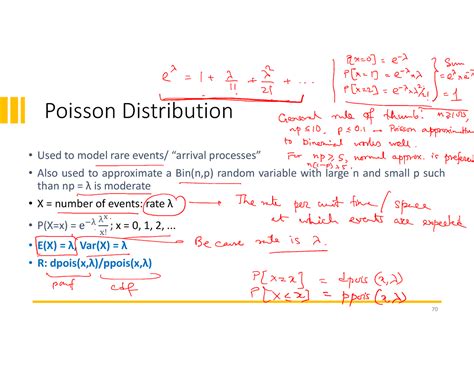 e^λ = 1 + λ/1! + λ²/2! + ...
P[X=0] = e^-λ
P[X=1] = e^-λ × λ
P[X=2] = e^-λ × λ²/2!
Sum
= e^λ × e^-λ
= 1
Poisson Distribution
General rule of thumb:
np ≤ 10, p ≤ 0.1 → Poisson approximation
to binomial works well.
For np ≥ 5, normal approx. is preferred
n(1-p) ≥ 5.
• Used to model rare events/ “arrival processes”
• Also used to approximate a Bin(n,p) random variable with large n and small p such
than np = λ is moderate
• X = number of events: rate λ → The rate per unit time / space
at which events are expected
• P(X=x) = e^-λ λ^x/x! ; x = 0, 1, 2, ...
• E(X) = λ, Var(X) = λ
Because rate is λ.
• R: dpois(x,λ)/ppois(x,λ)
pmf cdf
P[X=x] = dpois(x,λ)
P[X≤x] = ppois(x,λ)
70